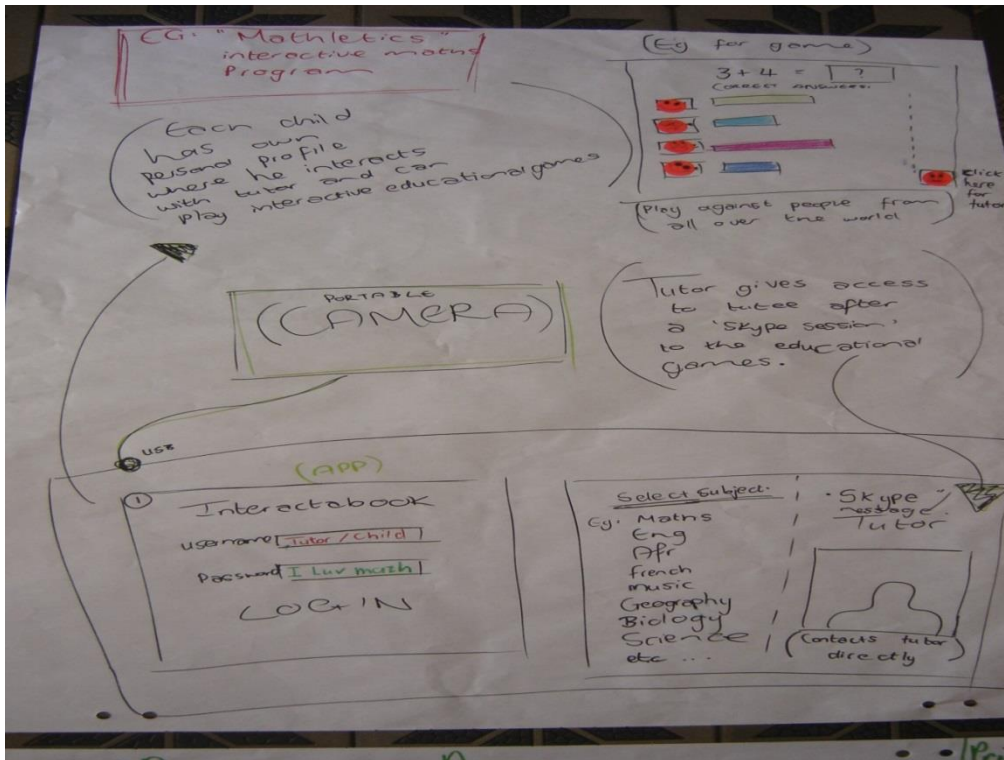 EG. "Mathletics"
interactive maths
Program
(Eg for game)
3 + 4 = ?
CORRECT ANSWERS:
Click
here
for
tutor
(Play against people from
all over the world)
(Each child
has own
personal profile
where he interacts
with tutor and can
play interactive educational games)
PORTABLE
(CAMERA)
(Tutor gives access
to tutee after
a 'Skype session'
to the educational
games.)
USB
(APP)
1
Interactabook
username Tutor / Child
Password I Luv mazh
LOGIN
Select Subject.
Eg. Maths
Eng
Afr
french
music
Geography
Biology
Science
etc ...
"Skype"
message
Tutor
(Contacts tutor
directly)